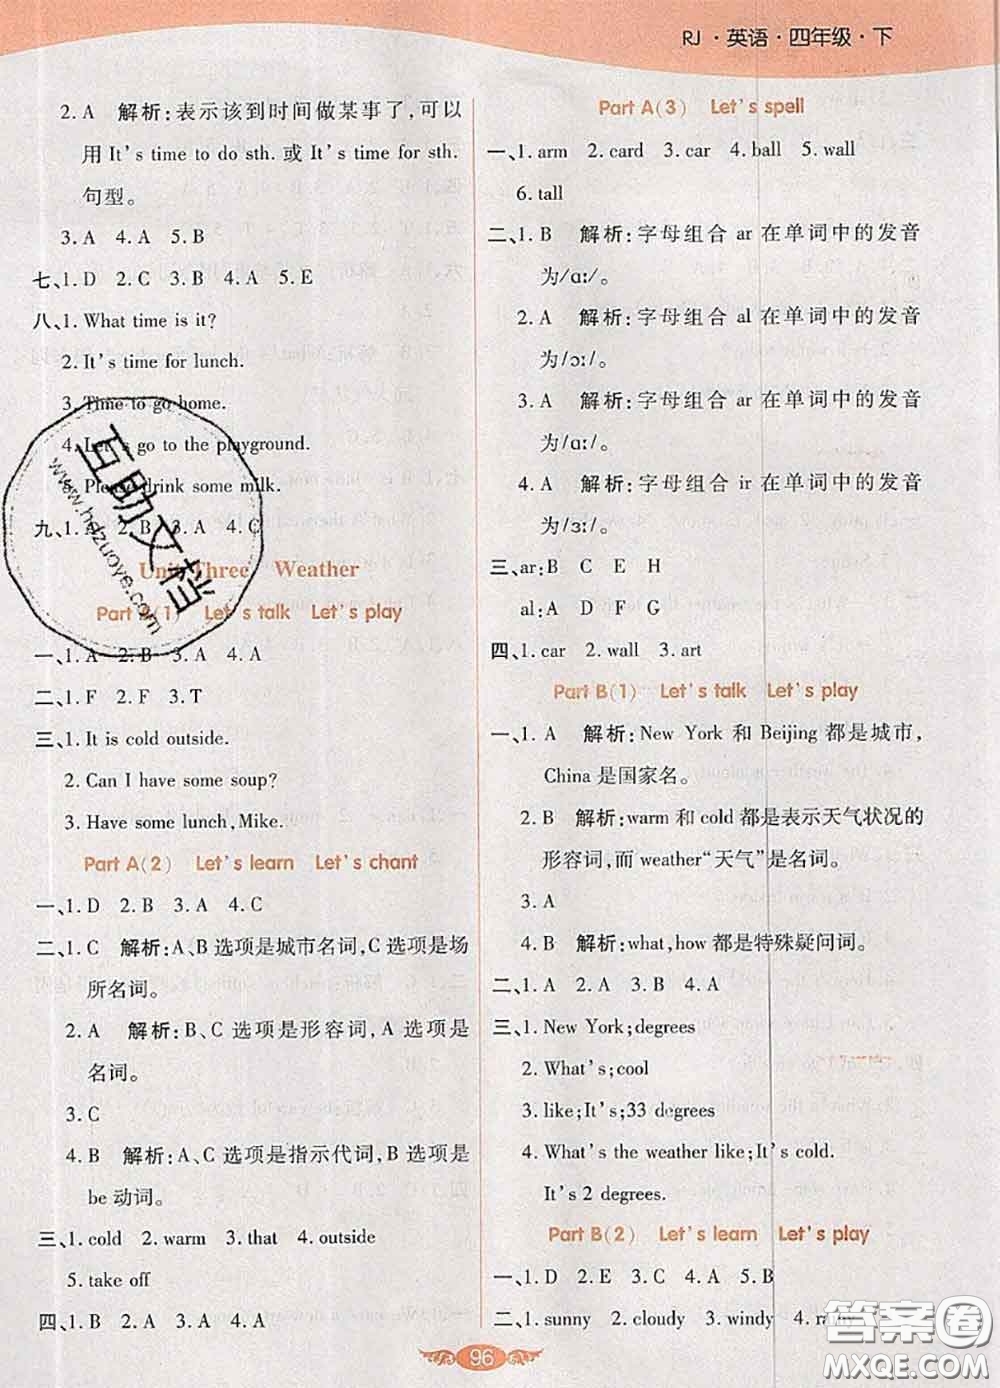 RJ · 英语 · 四年级 · 下
2. A 解析:表示该到时间做某事了,可以
用 It's time to do sth. 或 It's time for sth.
句型。
3. A 4. A 5. B
七、1. D 2. C 3. B 4. A 5. E
八、1. What time is it?
2. It's time for lunch.
3. Time to go home.
4. Let's go to the playground.
Please drink some milk.
九、1. 2. B 3. A 4. C
Unit Three Weather
Part A(1) Let's talk Let's play
一、1. A 2. B 3. A 4. A
二、1. F 2. F 3. T
三、1. It is cold outside.
2. Can I have some soup?
3. Have some lunch, Mike.
Part A(2) Let's learn Let's chant
一、1. D 2. B 3. A 4. C
二、1. C 解析:A、B 选项是城市名词,C 选项是场
所名词。
2. A 解析:B、C 选项是形容词,A 选项是
名词。
3. C
4. B 解析:A、C 选项是指示代词,B 选项是
be 动词。
三、1. cold 2. warm 3. that 4. outside
5. take off
四、1. B 2. A 3. A 4. B 5. A
Part A(3) Let's spell
一、1. arm 2. card 3. car 4. ball 5. wall
6. tall
二、1. B 解析:字母组合 ar 在单词中的发音
为/ɑː/。
2. A 解析:字母组合 al 在单词中的发音
为/ɔː/。
3. A 解析:字母组合 ar 在单词中的发音
为/ɑː/。
4. A 解析:字母组合 ir 在单词中的发音
为/ɜː/。
三、ar: B C E H
al: A D F G
四、1. car 2. wall 3. art
Part B(1) Let's talk Let's play
一、1. A 解析:New York 和 Beijing 都是城市,
China 是国家名。
2. B 解析:warm 和 cold 都是表示天气状况的
形容词,而 weather“天气”是名词。
3. A
4. B 解析:what, how 都是特殊疑问词。
二、1. A 2. A 3. B 4. A
三、1. New York; degrees
2. What's; cool
3. like; It's; 33 degrees
4. What's the weather like; It's cold.
It's 2 degrees.
Part B(2) Let's learn Let's play
一、1. D 2. E 3. C 4. A 5. B
二、1. sunny 2. cloudy 3. windy 4. rainy
96
互助文档
www.hdzuoye.com
答案圈
MXQE.COM